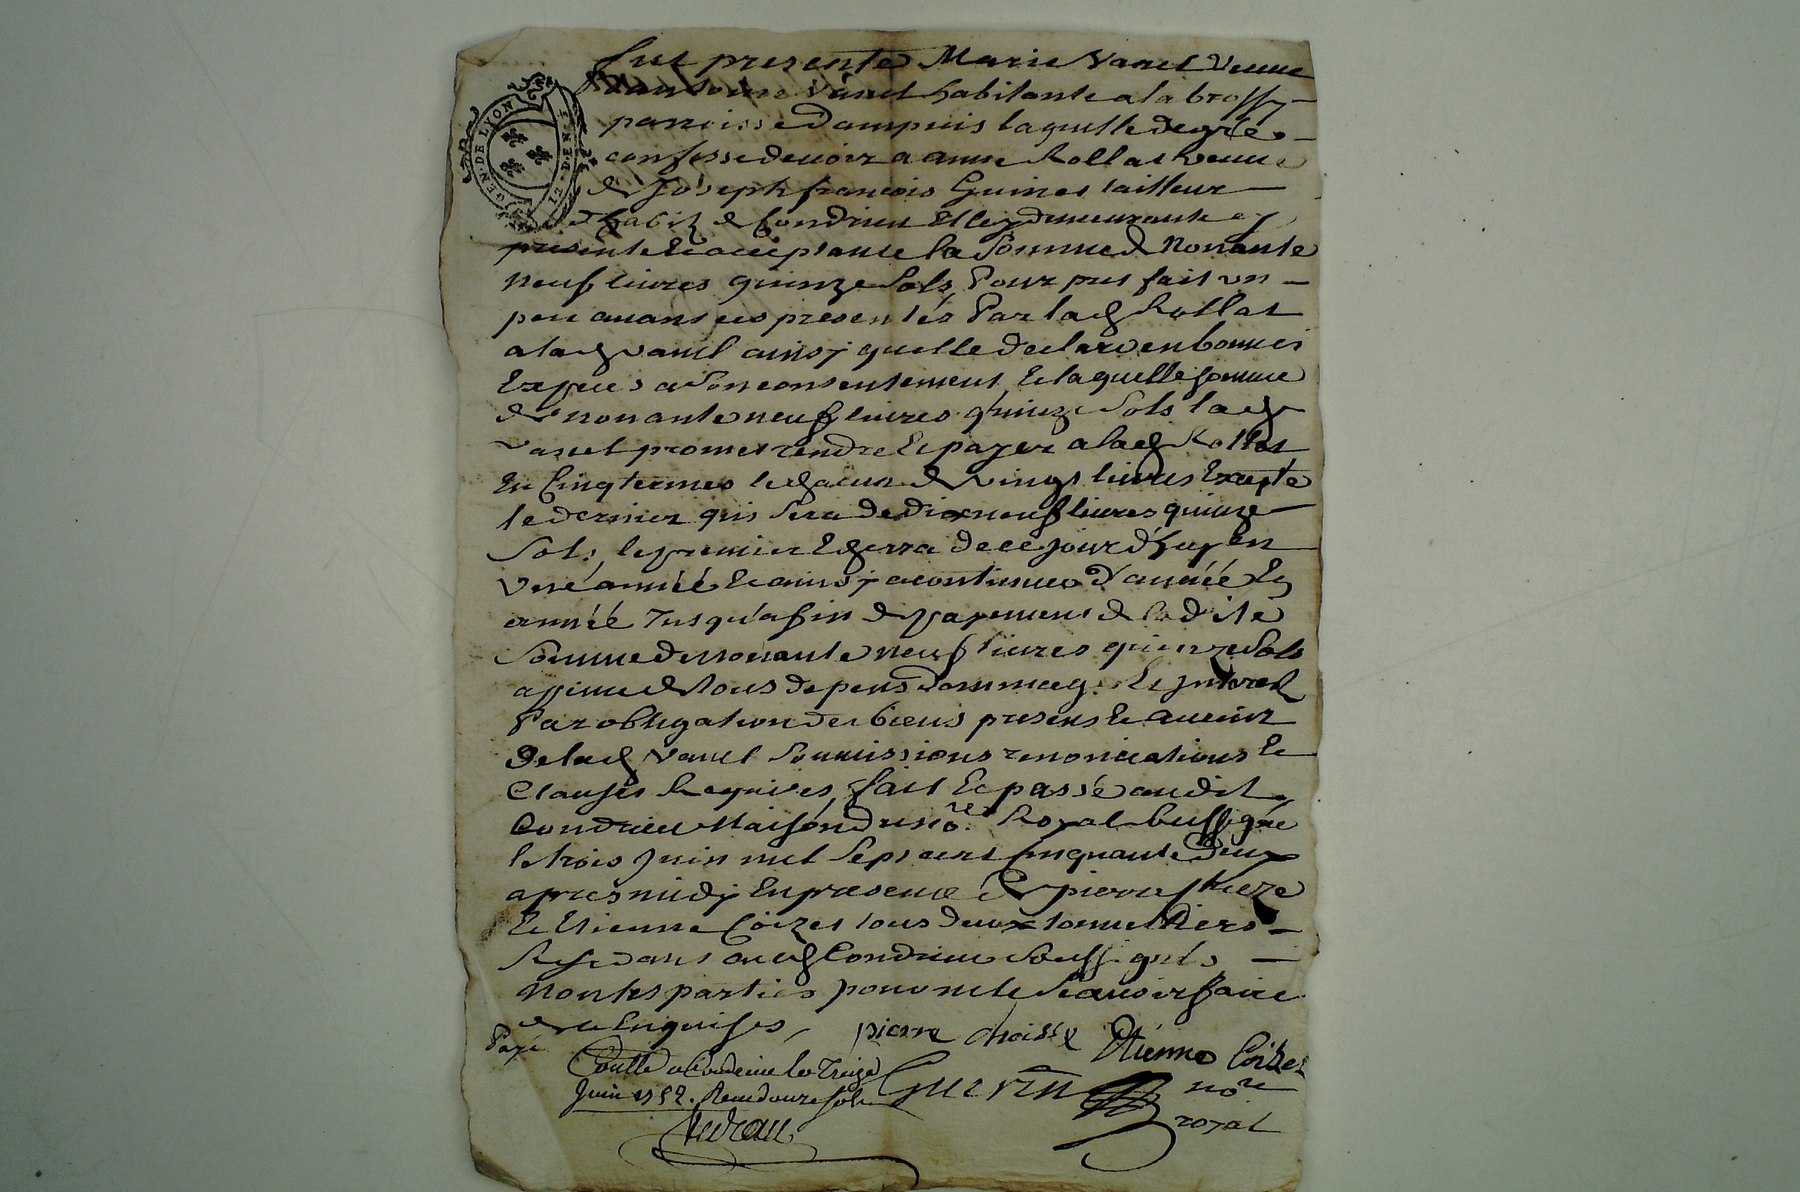 fut presente Marie Vanel Veuve
Vanel habitante a la brossy
parroisse dampuis laquelle de gré
confesse devoir a anne Rollat veuve
de Joseph françois Guinet tailleur
d'habit de Condrieu Elley demeurante cy
presente Et acceptante la Somme de Nonante
neuf livres quinze Sols Pour pret fait un
peu avant ces presentes Par lad Rollat
a lad vanel ainsy quelle declare en bonnes
Especes a Son consentement Et laquelle somme
de nonante neuf livres quinze Sols lad
vanel promet rendre Et payer a lad Rollat
En Cinq termes le chacun de vingt livres Excepte
le dernier qui Sera de dix neuf livres quinze
Sols, le premier Echerra de ce jour d'huy En
une année Et ainsy a continuer d'année En
année Jusqu'a fin de payement de ladite
Somme de nonante neuf livres quinze Sols
a peine de tous depens dommag. Et Interest
Par obligation de biens presens Et avenir
de lad Vanel Soumissions renonciations Et
Clauses Requises, fait Et passé audit
Condrieu Maison du no.re Royal Soussigné
le trois Juin mil Sept cent Cinquante deux
apres midy En presence de pierre
Et Etienne Coizet tous deux tonnelliers
Residans aud Condrieu Soussignés
Non les parties pour ne le Scavoir faire
de ce Enquises, pierre Etienne Coizet
Payé
Con.llé a Condrieu le Treize
Juin 1752. Receu douze sols Guerin no.re
royal